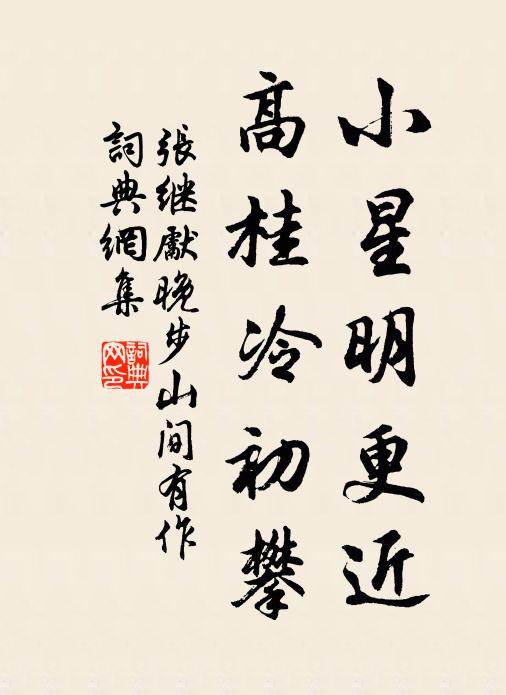 小星明更近
高桂冷初攀
張継獻晚步山间有作
詞典網集
詞典网印